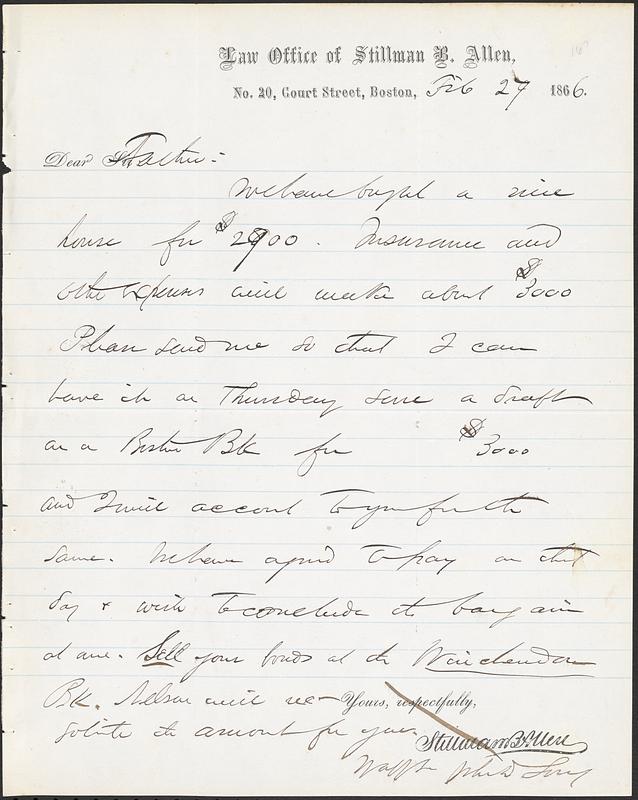 Law Office of Stillman B. Allen,
No. 20, Court Street, Boston, Feb 27 1866.
Dear Father:-
We have bought a nice
house for $2900. Insurance and
other expenses will make about $3000
Please send me so that I can
have it on Thursday sure a draft
on a Boston Bk for $3000
and I will account to you for the
same. We have agreed to pay on that
day & wish to conclude the bargain
at once. Sell your bonds at the Winchendon
Bk. Nelson will ne-
Yours, respectfully,
gotiate the amount for you.
Stillman B Allen